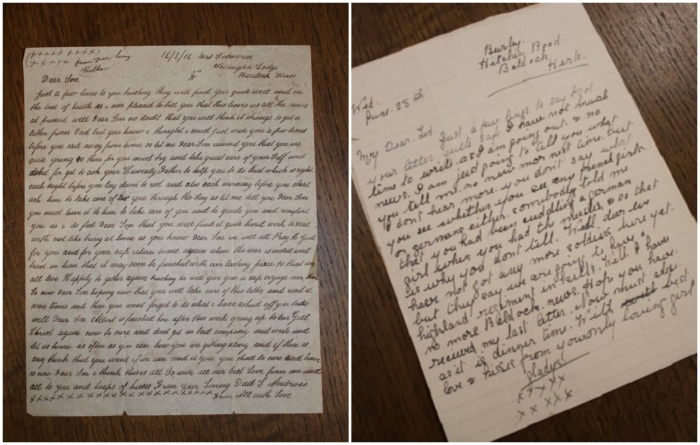 x x x x x x x x x
x x x x x from your loving
Mother
16/2/16
Lodge
Baldock Herts
Dear Son
Just a few lines to you hopping they will find you quite well and in
the best of health as I am pleased to tell you that this leaves us all the same
at present well Dear Son no doubt that you will think it strange to get a
letter from Dad but you know I thought I must just write you a few lines
before you sail away from home so let me Dear Son remind you that you are
quite young so then for you must try and take great care of your self and
dont for get to ask your Heavenly Father to help you to do that which is right
each night before you lay down to rest and also each morning before you start
ask him to take care of you through the day so let me tell you Dear Son
you must trust in him to take care of you and to guide you and comfort
you as I do for Dear Son that you will find it quite hard work to deal
with not like being at home as you know Dear Son we will all Pray to God
for you and for your safe return home again when the war is ended and
trust in him that it may soon be finished with our lasting peace so that we
all be Happily to gather again
So now Dear Son hoping now that you will take care of this letter and read it
some times and then you wont forget to do what I have asked off you to do
well Dear Son Albert is finished his after this week going up to
again now be sure and dont get in bad company and write and
let us know as often as you can how you are getting along and if there is
any think that you want if we can send it you you shall be sure and have it
so now Dear Son I think this is all so with all our best Love from me and
all to you and heaps of kisses From Your Loving Dad S Ambrose
x x x x x x x x x x x x x x x x x x x x x From All with Love
Burley
Hitchin Road
Baldock
Herts.
Wed
June 28th
My Dear Ted Just a few lines to say I got
your letter quite safe I have not much
time to write as I am going out. & no
news. I am just going to tell you what
you tell me no news nor next time, but
I don't hear more. you don't say what
you see whether you see any french girls
or germans either. somebody told me
that you had been cuddling a german
girl when you had the measles & so that
is why you dont tell. Well, dear we
have not got any more soldiers here yet.
but they say we are going to have a
highland regiment in kilts. Well I have
no more Baldock news. Hope you have
received my last letter. Now must stop
as it is dinner time. With best
love & kisses from your only loving girl
Gladys
x x x x x
x x x x x